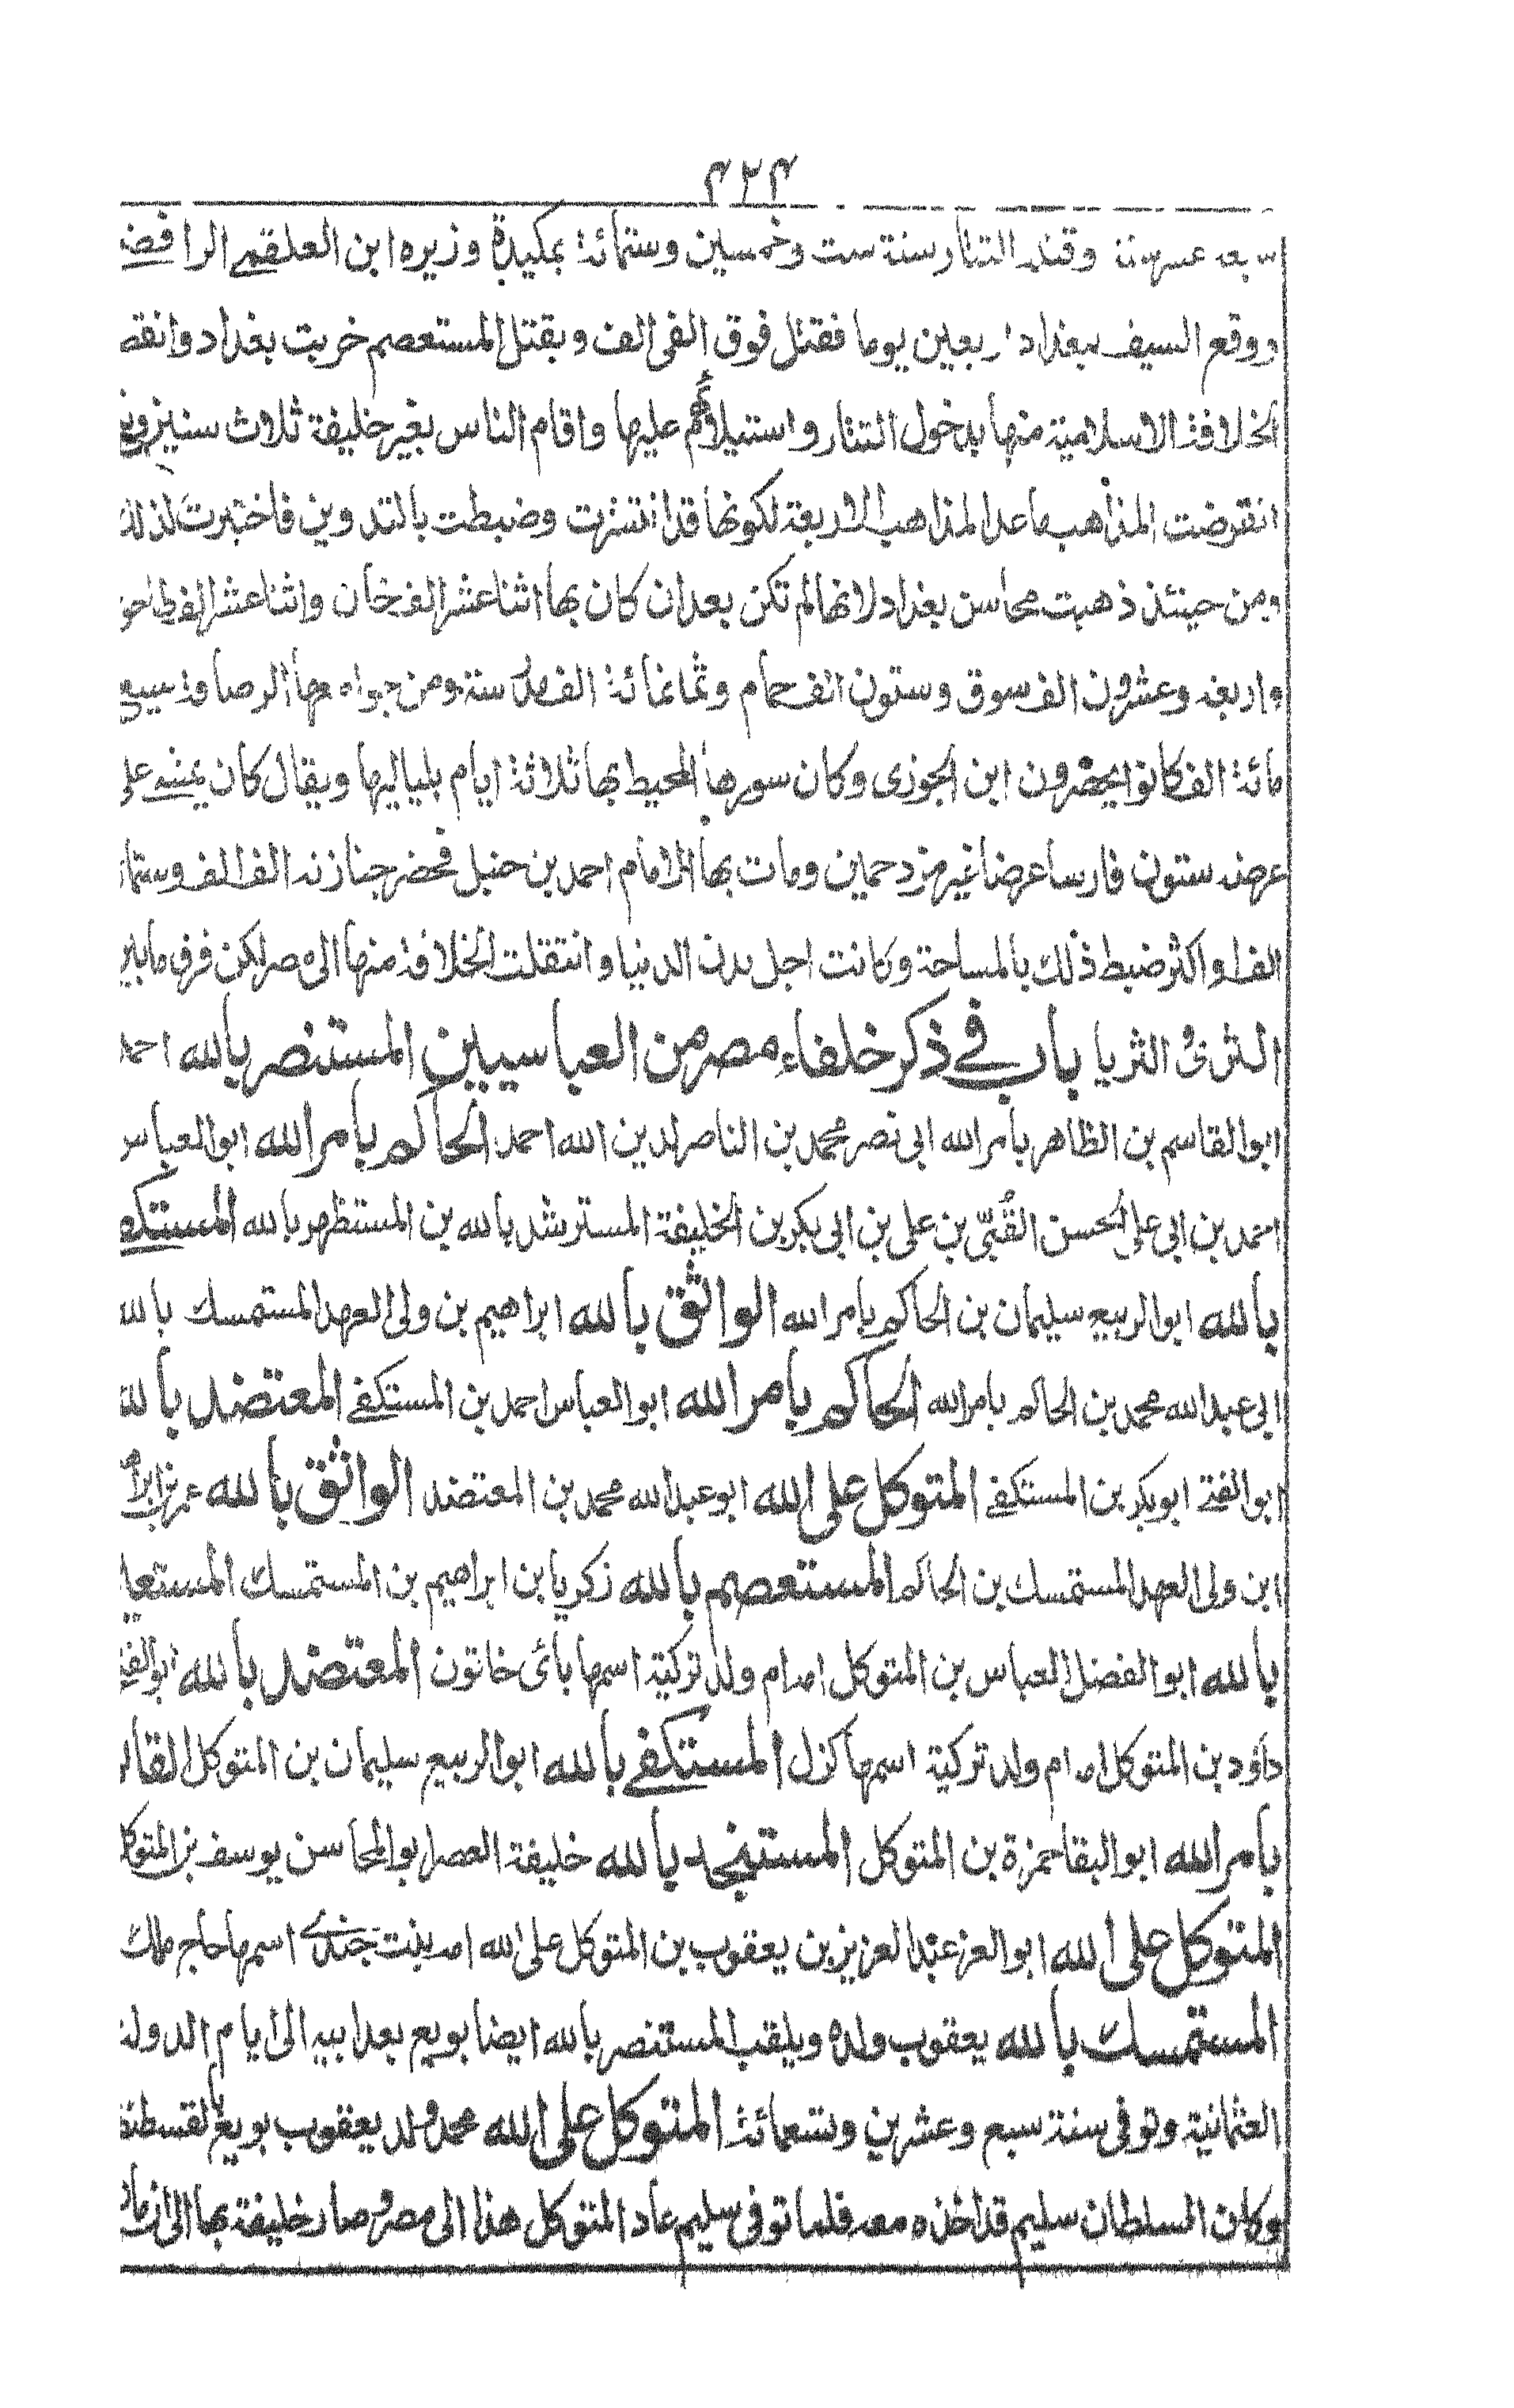 ٤٢٤
سبعة عشر سنة وقتله التتار سنة ست وخمسين وستمائة بمكيدة وزيره ابن العلقمي الرافض
ووقع السيف ببغداد اربعين يوما فقتل فوق الفي الف وبقتل المستعصم خربت بغداد وانقض
الخلافة الاسلامية منها بدخول التتار واستيلائهم عليها واقام الناس بغير خليفة ثلاث سنين
انقرضت المذاهب ما عدا المذاهب الاربعة لكونها قد انتشرت وضبطت بالتدوين فاختبرت لذلك
ومن حينئذ ذهبت محاسن بغداد لانها لم تكن بعد ان كان بها اثنا عشر الف خان واثنا عشر الف طاحو
واربعة وعشرون الف سوق وستون الف حمام وثمانمائة الف سنة ومن جوامعها الرصافة سبع
مائة الف كانوا يحضرون ابن الجوزى وكان سورها المحيط بها ثلاثة ايام بلياليها ويقال كان يمشي على
عرضه ستون فارسا عرضا غير مزدحمين ومات بها الامام احمد بن حنبل فحضر جنازته الف الف وستما
الف او اكثر ضبط ذلك بالمساحة وكانت اجل مدن الدنيا وانتقلت الخلافة منها الى مصر لكن فرق ما بين
الثرى والثريا باب في ذكر خلفاء مصر من العباسيين المستنصر بالله احمد
ابو القاسم بن الظاهر بامر الله ابى نصر محمد بن الناصر لدين الله احمد الحاكم بامر الله ابو العباس
احمد بن ابى على الحسن القبّى بن على بن ابى بكر بن الخليفة المسترشد بالله بن المستظهر بالله المستكف
بالله ابو الربيع سليمان بن الحاكم بامر الله الواثق بالله ابراهيم بن ولى العهد المستمسك بالله
ابى عبد الله محمد بن الحاكم بامر الله الحاكم بامر الله ابو العباس احمد بن المستكفي المعتضد بالله
ابو الفتح ابو بكر بن المستكفي المتوكل على الله ابو عبد الله محمد بن المعتضد الواثق بالله عمر بن ابرا
ابن ولى العهد المستمسك بن الحاكم المستعصم بالله زكريا بن ابراهيم بن المستمسك المستعا
بالله ابو الفضل العباس بن المتوكل امه ام ولد تركية اسمها باى خاتون المعتضد بالله ابو الفت
داؤد بن المتوكل امه ام ولد تركية اسمها كزل المستكفي بالله ابو الربيع سليمان بن المتوكل القا
بامر الله ابو البقا حمزة بن المتوكل المستنجد بالله خليفة العصر ابو المحاسن يوسف بن المتوكل
المتوكل على الله ابو العز عبد العزيز بن يعقوب بن المتوكل على الله امه بنت جندى اسمها حاج ملك
المستمسك بالله يعقوب ولده ويلقب المستنصر بالله ايضا بويع بعد ابيه الى ايام الدولة
العثمانية وتوفى سنة سبع وعشرين وتسعمائة المتوكل على الله محمد ولد يعقوب بويع بالقسطنط
وكان السلطان سليم قد اخذه معه فلما توفى سليم عاد المتوكل هذا الى مصر وصار خليفة بها الى ان مات